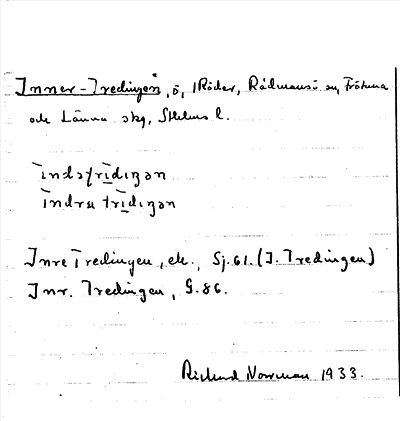 Inner-Tredingen, ö, i Röder, Rådmansö sn, Frötuna
och Länna skg, Sthlms l.
ìndəƒrídiƺən
ìndrɑ trídiƺən
Inre Tredingen, ek., Sj.61. (I. Tredingen)
Inr. Tredingen, G.86.
Rickard Norrman 1933.